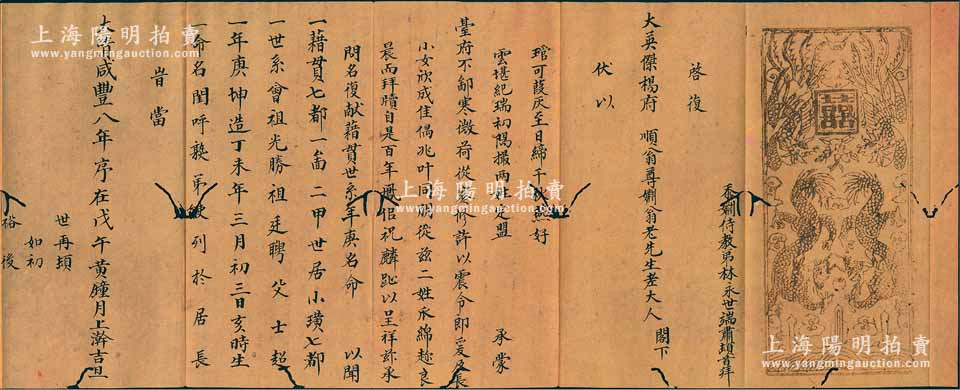 囍
忝姻侍教弟林永世端肅頓首拜
啓復
大英傑楊府 順翁尊姻翁老先生老大人 閣下
伏以
琯可葭灰至日締千
好
雲堪紀瑞初陽撮兩姓之盟 承蒙
臺府不鄙寒微荷從
許以震令郎爰及長
小女欣成佳偶兆叶同
從茲二姓永綿趂良
晨而拜牘自是百年
祝麟趾以呈祥玆承
問名復献藉貫世系年庚名命 以聞
一藉貫七都一啚二甲世居小璜七都
一世系會祖光勝祖廷聘父士超
一年庚坤造丁未年三月初三日亥時生
一命名閨呼
弟
列於居長
旹當
大清咸豐八年序在戊午黄鐘月上澣吉旦
世再頓
如初
啓後
上海陽明拍賣
www.yangmingauction.com
上海陽明拍賣
www.yangmingauction.com
上海陽明拍賣
www.yangmingauction.com
上海陽明拍賣
www.yangmingauction.com
上海陽明拍賣
www.yangmingauction.com